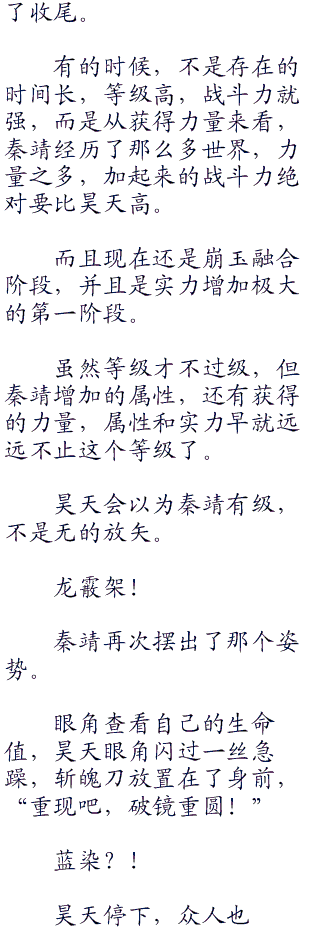 了收尾。
有的时候，不是存在的
时间长，等级高，战斗力就
强，而是从获得力量来看，
秦靖经历了那么多世界，力
量之多，加起来的战斗力绝
对要比昊天高。
而且现在还是崩玉融合
阶段，并且是实力增加极大
的第一阶段。
虽然等级才不过级，但
秦靖增加的属性，还有获得
的力量，属性和实力早就远
远不止这个等级了。
昊天会以为秦靖有级，
不是无的放矢。
龙霰架！
秦靖再次摆出了那个姿
势。
眼角查看自己的生命
值，昊天眼角闪过一丝急
躁，斩魄刀放置在了身前，
“重现吧，破镜重圆！”
蓝染？！
昊天停下，众人也